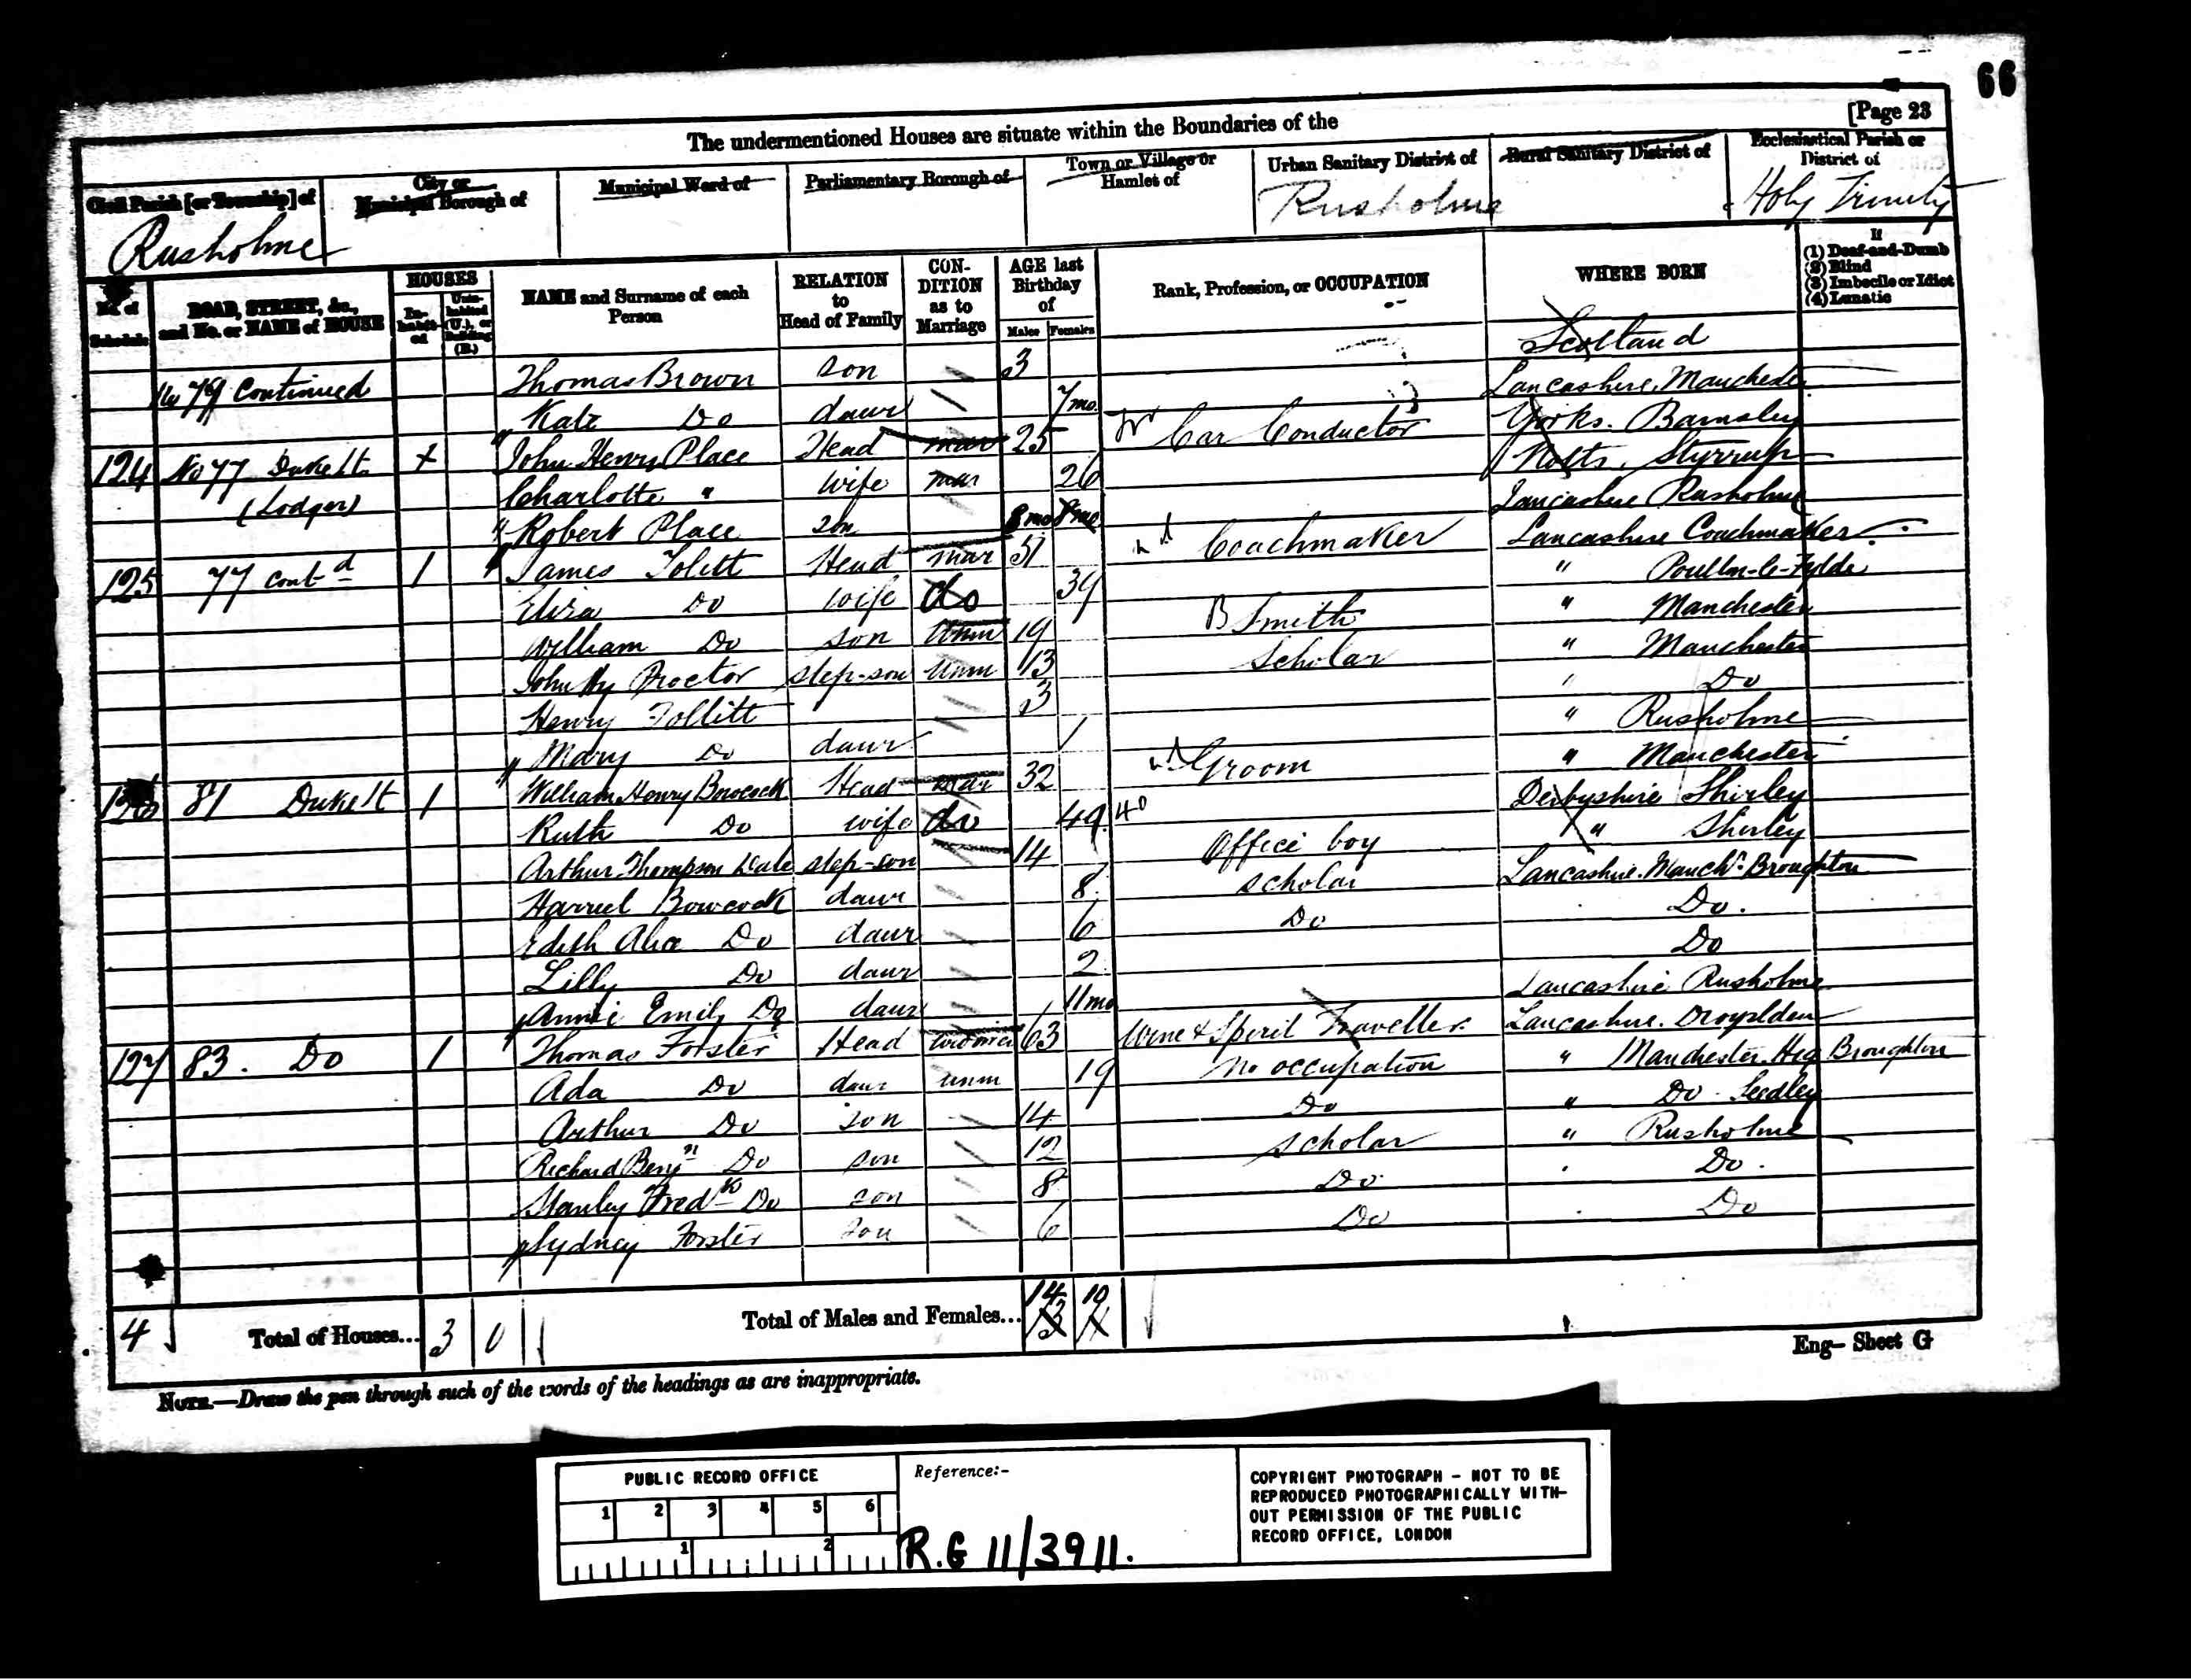 66
[Page 23
The undermentioned Houses are situate within the Boundaries of the
Civil Parish [or Township] of
City or Municipal Borough of
Municipal Ward of
Parliamentary Borough of
Town or Village or Hamlet of
Urban Sanitary District of
Rural Sanitary District of
Ecclesiastical Parish or District of
Rusholme
Rusholme
Holy Trinity
No. of Schedule
ROAD, STREET, &c., and No. or NAME of HOUSE
HOUSES
Inhabited
Uninhabited (U.), or Building (B.)
NAME and Surname of each Person
RELATION to Head of Family
CONDITION as to Marriage
AGE last Birthday of
Males Females
Rank, Profession, or OCCUPATION
WHERE BORN
If
(1) Deaf-and-Dumb
(2) Blind
(3) Imbecile or Idiot
(4) Lunatic
79 Continued Thomas Brown son 3 Scotland
Kate Do daur 7 mo. Lancashire, Manchester
124 No 77 Duke St John Henry Place Head mar 25 Car Conductor Yorks. Barnsley
(Lodger) Charlotte " wife mar 26 Notts, Styrrup
" Robert Place son 8 mo Lancashire Rusholme
125 77 contd 1 James Head mar 51 Coachmaker Lancashire Coachmaker
Eliza Do wife do 39 " Poulton-le-Fylde
William Do son Unm 19 B Smith " Manchester
John Hy Proctor step-son Unm 13 Scholar " Manchester
Henry Follitt 3 " Do
" Mary Do daur 1 " Rusholme
126 81 Duke St 1 William Henry Bowcock Head mar 32 Groom " Manchester
Ruth Do wife do 49 Derbyshire Shirley
Arthur Thompson Dale step-son 14 Office boy " Shirley
Harriet Bowcock daur 8 scholar Lancashire. Manchr. Broughton
Edith Alice Do daur 6 Do Do.
Lilly Do daur 2 Do
Annie Emily Do daur 11 mo Lancashire Rusholme
127 83. Do 1 Thomas Forster Head widower 63 Wine & Spirit Traveller Lancashire. Droylsden
Ada Do daur unm 19 No occupation " Manchester Hig Broughton
Arthur Do son 14 Do " Do Seedley
Richard Benjn Do son 12 scholar " Rusholme
Stanley Fredk Do son 8 Do Do.
Sydney Forster son 6 Do Do
4 Total of Houses... 3 0 Total of Males and Females... 14 10
Eng— Sheet G
NOTE.—Draw the pen through such of the words of the headings as are inappropriate.
PUBLIC RECORD OFFICE
1 2 3 4 5 6
1 2
Reference:-
R.G 11/3911.
COPYRIGHT PHOTOGRAPH – NOT TO BE
REPRODUCED PHOTOGRAPHICALLY WITH-
OUT PERMISSION OF THE PUBLIC
RECORD OFFICE, LONDON